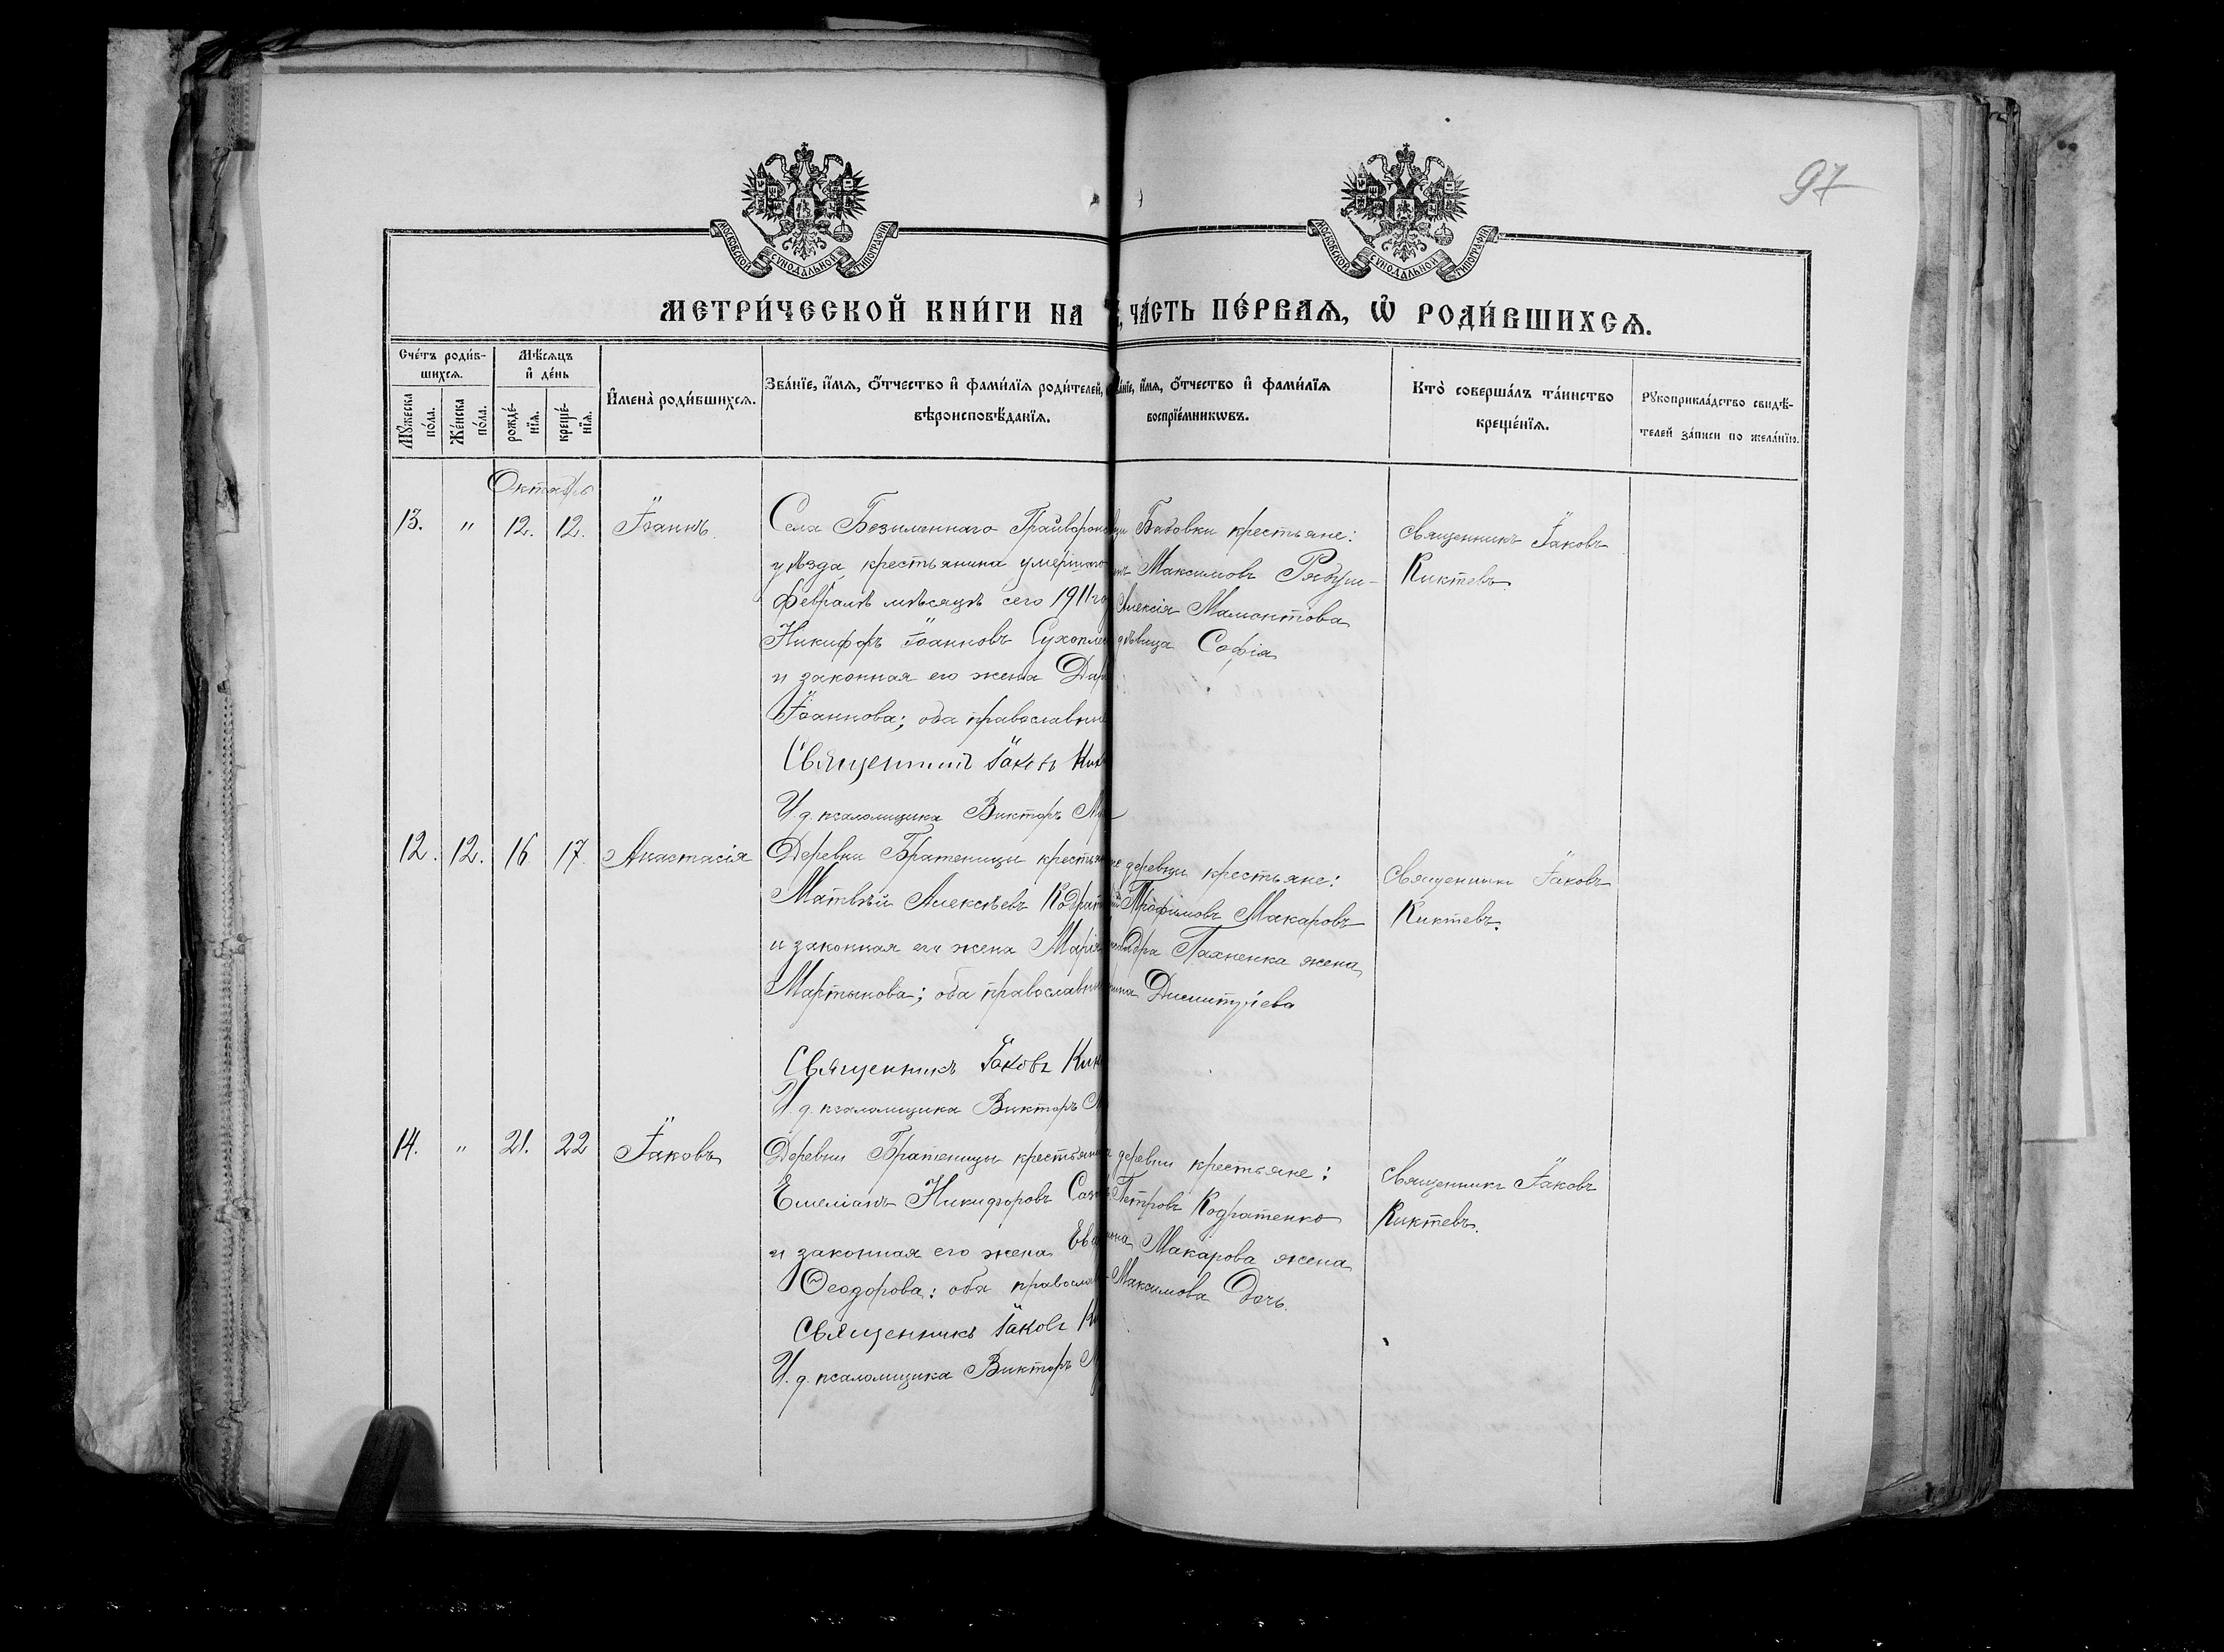 97
МОСКОВСКОЙ СѴНОДАЛЬНОЙ ТИПОГРАФІИ
МОСКОВСКОЙ СѴНОДАЛЬНОЙ ТИПОГРАФІИ
МЕТРИ́ЧЕСКОЙ КНИ́ГИ НА
ЧА́СТЬ ПЕ́РВАѦ, Ѡ҆ РОДИ́ВШИХСѦ.
Сче́тъ роди́в-
шихсѧ.
Мꙋ́жеска
по́ла.
Же́нска
по́ла.
Мѣ́сѧцъ
и҆ де́нь
рожде́-
нїѧ.
креще́-
нїѧ.
И҆мена̀ роди́вшихсѧ.
Зва́нїе, и҆́мѧ, ѻ҆́тчество и҆ фами́лїѧ роди́телей,
вѣроисповѣ́данїѧ.
и҆́мѧ, ѻ҆́тчество и҆ фами́лїѧ
воспрїе́мникѡвъ.
Кто̀ соверша́лъ та́инство
креще́нїѧ.
Рꙋкоприкла́дство свидѣ́-
телей за́писи по жела́нїю.
Октябрь
13. " 12. 12. Іоаннъ.
Села Безыменнаго
уѣзда крестьянина умершаго
февралѣ мѣсяцѣ сего 1911
Іоанновъ
и законная его жена
Іоаннова; оба
Священникъ Іаковъ
И. д. псаломщика Викторъ
крестьяне:
Максимовъ
Алексія Мамонтова
дѣвица Софія
Священникъ Іаковъ
Киктевъ
12. 12. 16 17. Анастасія
Деревни Братеницы
Матвѣй Алексѣевъ
и законная его жена Марія
Мартынова; оба
Священникъ Іаковъ
И. д. псаломщика Викторъ
деревни крестьяне:
Трофимовъ Макаровъ
Пахненка жена
Димитріева
Священникъ Іаковъ
Киктевъ.
14. " 21. 22 Іаковъ
Деревни Братеницы
Емеліанъ Никифоровъ
и законная его жена
Ѳеодорова: оба
Священникъ Іаковъ
И. д. псаломщика Викторъ
деревни крестьяне:
Петровъ Кодратенко
Макарова жена
Максимова дочь.
Священникъ Іаковъ
Киктевъ.